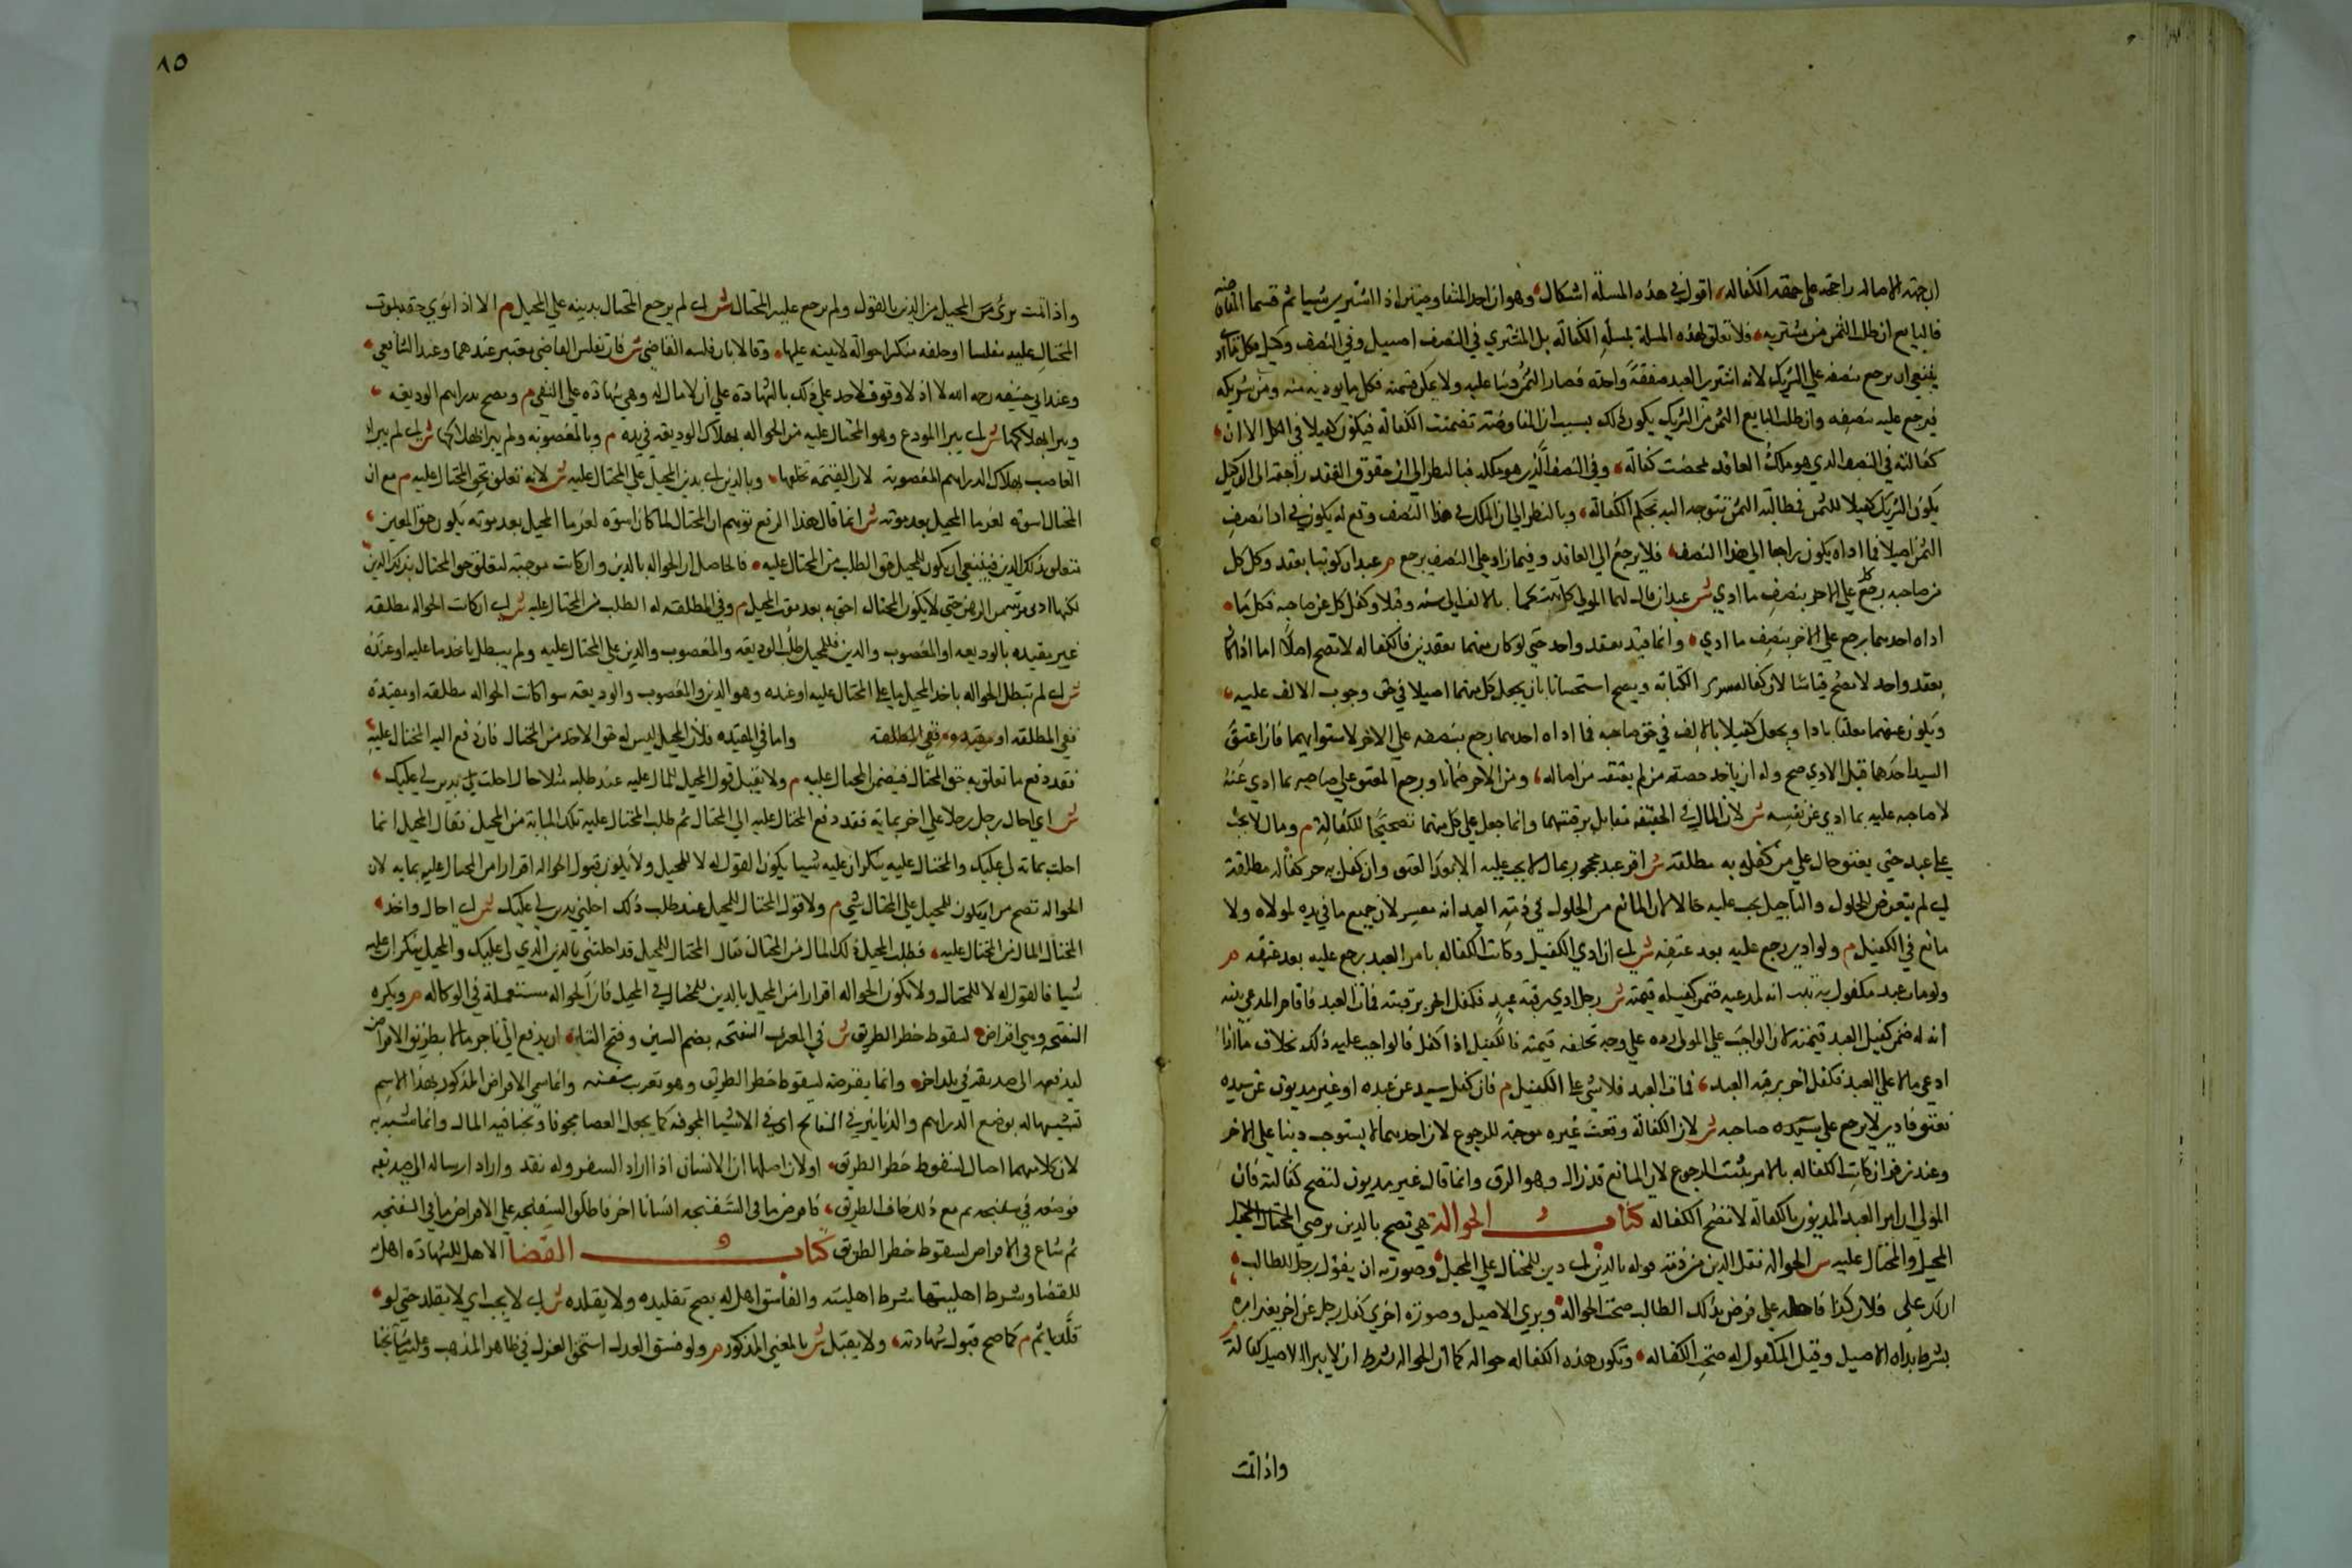 ان جهة الاصاله راجحه على جهة الكفاله اقول في هذه المسله اشكال وهو ان احد المتفاوضين اذا اشتري شيا ثم فسخا المفاوضه
فالبايع ان طلب الثمن من مشتريه فلا تعلق لهذه المسلة بمسلة الكفالة بل المشتري في النصف اصيل وفي النصف وكيل فكل ما اد
ينبغي ان يرجع بنصفه علي الشريك لانه اشتري العبد صفقة واحدة فصار الثمن دينا عليه ولا يمكن قسمته فكل ما يوديه منه ومن شريكه
فيرجع عليه بنصفه وان طلب البايع الثمن من الشريك يكون ذلك بسبب ان المفاوضة تضمنت الكفالة فيكون كفيلا في الكل الا ان
كفالته في النصف الذي هو ملك العاقد تمحضت كفالة وفي النصف الذي هو ملكه فبالنظر الي ان حقوق العقد راجعة الى الوكيل
يكون الشريك كفيلا للثمن فمطالبة الثمن تتوجه اليه بحكم الكفالة وبالنظر الي ان الملك في هذا النصف وقع له يكون في ادا نصف
الثمن اصيلا فما اداه يكون راجعا الي هذا النصف فلا يرجع الي العاقد وفيما زاد علي النصف يرجع م عبدان كوتبا بعقد وكل كل
من صاحبه رجع كل علي الاخر بنصف ما ادي ش عبدان قال لهما المولي كاتبتكما بالالف الي سنه وقبلا وكفل كل عن صاحبه فكل ما
اداه احدهما يرجع علي الاخر بنصف ما ادي وانما قيد بعقد واحد حتي لو كان منهما بعقدين فالكفاله لا تصح اصلا اما اذا كان
بعقد واحد لا تصح قياسا لان كفالة ببدل الكتابة ويصح استحسانا بان يجعل كل منهما اصيلا في حق وجوب الالف عليه
ويكون عتقهما معلقا بادا ويجعل كفيلا بالالف في حق صاحبه فما اداه احدهما رجع بنصفه علي الاخر لاستوايهما فان اعتق
السيد احدهما قبل الادي صح وله ان ياخذ حصته من لم يعتقه من اصاله ومن الاخر ضمانا ورجع المعتق علي صاحبه بما ادي عنه
لا صاحبه عليه بما ادي عن نفسه ش لان المال في الحقيقه مقابل برقبتهما وانما جعل علي كل منهما تصحيحا للكفالة م ومال لا يجب
علي عبد حتي يعتق حال علي من كفل به مطلقة ش اقر عبد محجور بمال لا يجب عليه الا بعد العتق وان كفل به حر كفاله مطلقة
لي لم يتعرض للحلول والتاجيل يجب عليه حالا لان المانع من الحلول في ذمة العبد انه معسر لان جميع ما في يده لمولاه ولا
مانع في الكفيل م ولو ادي رجع عليه بعد عتقه ش لي ان ادي الكفيل وكانت الكفاله بامر العبد يرجع عليه بعد عتقه م
ولو مات عبد مكفول برقبته انه لمدعيه ضمن كفيله قيمته ش رجل ادي رقبة عبد فكفل اخر برقبته فمات العبد فاقام المدعي بينه
انه له ضمن كفيل العبد قيمته لان الواجب علي المولي رده علي وجه تخلفه قيمته فالكفيل اذا كفل فالواجب عليه ذلك بخلاف ما اذا
ادعي مالا علي العبد فكفل اخر برقبة العبد فمات العبد فلا شي علي الكفيل م فان كفل سيد عن عبده او غير مديون عن سيده
فعتق فادي لا يرجع علي سيده صاحبه ش لان الكفالة وقعت غير موجبة للرجوع لان احدهما لا يستوجب دينا علي الاخر
وعند زفر ان كانت الكفاله بالامر يثبت الرجوع لان المانع قد زال وهو الرق وانما قال غير مديون لتصح كفالته فان
المولي ان امر العبد المديون بالكفالة لا تصح الكفاله كتاب الحوالة هي تصح بالدين برضي المحتال المحيل
المحيل والمحتال عليه ش الحواله نقل الدين من ذمته قوله بالدين لي دين للمحتال علي المحيل وصورته ان يقول رجل للطالب
ان لك علي فلان كذا فاحله علي فرضي بذلك الطالب صحت الحواله وبري الاصيل وصورة اخري كفل رجل عن اخر بغير امره
بشرط براه الاصيل وقبل المكفول له صحت الكفاله وتكون هذه الكفاله حواله كما ان الحواله بشرط ان لا يبرا الاصيل كفالة م
واذا تمت
٨٥
واذا تمت بري المحيل من الدين بالقبول ولم يرجع عليه المحتال ش لي لم يرجع المحتال بدينه علي المحيل م الا اذا توي حقه بموت
المحتال عليه مفلسا او حلفه منكرا حوالة لا بينه عليها وقالا بان فلسه القاضي ش فان تفليس القاضي معتبر عندهما وعند الشافعي
وعند ابي حنيفه رحمه الله لا اذ لا وقوف لاحد علي ذلك بالشهادة علي ان لا مال له وهي شهادة علي النفي م وتصح بدراهم الوديعة
ويبرا بهلاكها ش لي يبرا المودع وهو المحتال عليه من الحواله بهلاك الوديعه في يده م وبالمغصوبه ولم يبرا بهلاكها ش لي لم يبرا
الغاصب بهلاك الدراهم المغصوبة لان القيمة تخلفها وبالدين لي بدين المحيل علي المحتال عليه ش لانه تعلق به حق المحتال عليه م مع ان
المحتال اسوة لغرما المحيل بعد موته ش انما قال هذا الدفع توهم ان المحتال لما كان اسوه لغرما المحيل بعد موته يكون حق المعين
تتعلق بذلك الدين فينبغي ان يكون للمحيل حق الطلب من المحتال عليه فالحاصل ان الحواله بالدين وان كانت موجبة لتعلق حق المحتال بذلك الدين
لكنها ادني مرتبة من الرهن حتي لا يكون المحتال احق به بعد موت المحيل م وفي المطلقة له الطلب من المحتال عليه ش لي ان كانت الحواله مطلقه
غير مقيده بالوديعه او المغصوب والدين فللمحيل طلب الوديعه والمغصوب والدين علي المحتال عليه ولم يبطل باخذ ما عليه او عنده
ش لي لم تبطل الحواله باخذ المحيل ما علي المحتال عليه او عنده وهو الدين والمغصوب والوديعه سوا كانت الحواله مطلقه او مقيدة
ففي المطلقه او مقيده ففي المطلقة واما في المقيده فلان المحيل ليس له حق الاخذ من المحتال فان دفع اليه المحتال عليه
فقد دفع ما تعلق به حق المحتال فيضمن المحتال عليه م ولا يقبل قول المحيل للمال عليه عند طلبه مثلا حال احلت بدين لي عليك
ش اي احال رجل رجلا علي اخر بماية فقد دفع المحتال عليه الي المحتال ثم طلب المحتال عليه تلك الماية من المحيل فقال المحيل انما
احلت بماية لي عليك والمحتال عليه ينكر ان عليه شيا يكون القول له لا للمحيل ولا يكون قبول الحواله اقرارا من المحتال عليه بمايه لان
الحواله تصح من ان يكون للمحيل علي المحتال شي م ولا قول المحتال للمحيل عند طلب ذلك احلتني بدين لي عليك ش لي احال واخذ
المحتال المال من المحتال عليه فطلب المحيل ذلك المال من المحتال فقال المحتال للمحيل قد احلتني بالدين الذي لي عليك والمحيل ينكر ان عليه
شيا فالقول له لا للمحتال ولا تكون الحواله اقرارا من المحيل بالدين للمحتال في المحيل فان الحواله مستعملة في الوكاله م ويكره
السفتجه وهي اقراض لسقوط خطر الطريق ش في المغرب السفتجه بضم السين وفتح التاء ان يدفع الي تاجر مالا بطريق الاقراض
ليدفعه الى صديقه في بلد اخر وانما يقرضه لسقوط خطر الطريق وهو تعريب سفته وانما سمي الاقراض المذكور بهذا الاسم
تشبيها له بوضع الدراهم والدنانير في السفاتج اي في الاشيا المجوفه كما يجعل العصا مجوفا ويخبا فيه المال وانما شبه به
لان كلا منهما احتال لسقوط خطر الطريق او لان اصلها ان الانسان اذا اراد السفر وله نقد واراد ارساله الي صديقه
فوضعه في سفتجه ثم مع ذلك خاف الطريق فاقرض ما في السفتجه انسانا اخر فاطلق السفتجه علي الاقراض ما في السفتجه
ثم شاع في الاقراض لسقوط خطر الطريق كتاب القضا الاهل للشهاده اهل
للقضا وشرط اهليتها شرط اهليته والفاسق اهل له يصح تقليده ولا يقلده ش لي لا يجب اي لا يقلد حتي لو
قلد ياثم م كما صح قبول شهادته ولا يقبل ش بالمعني المذكور م ولو فسق العدل استحق العزل في ظاهر المذهب وعليه مشايخنا